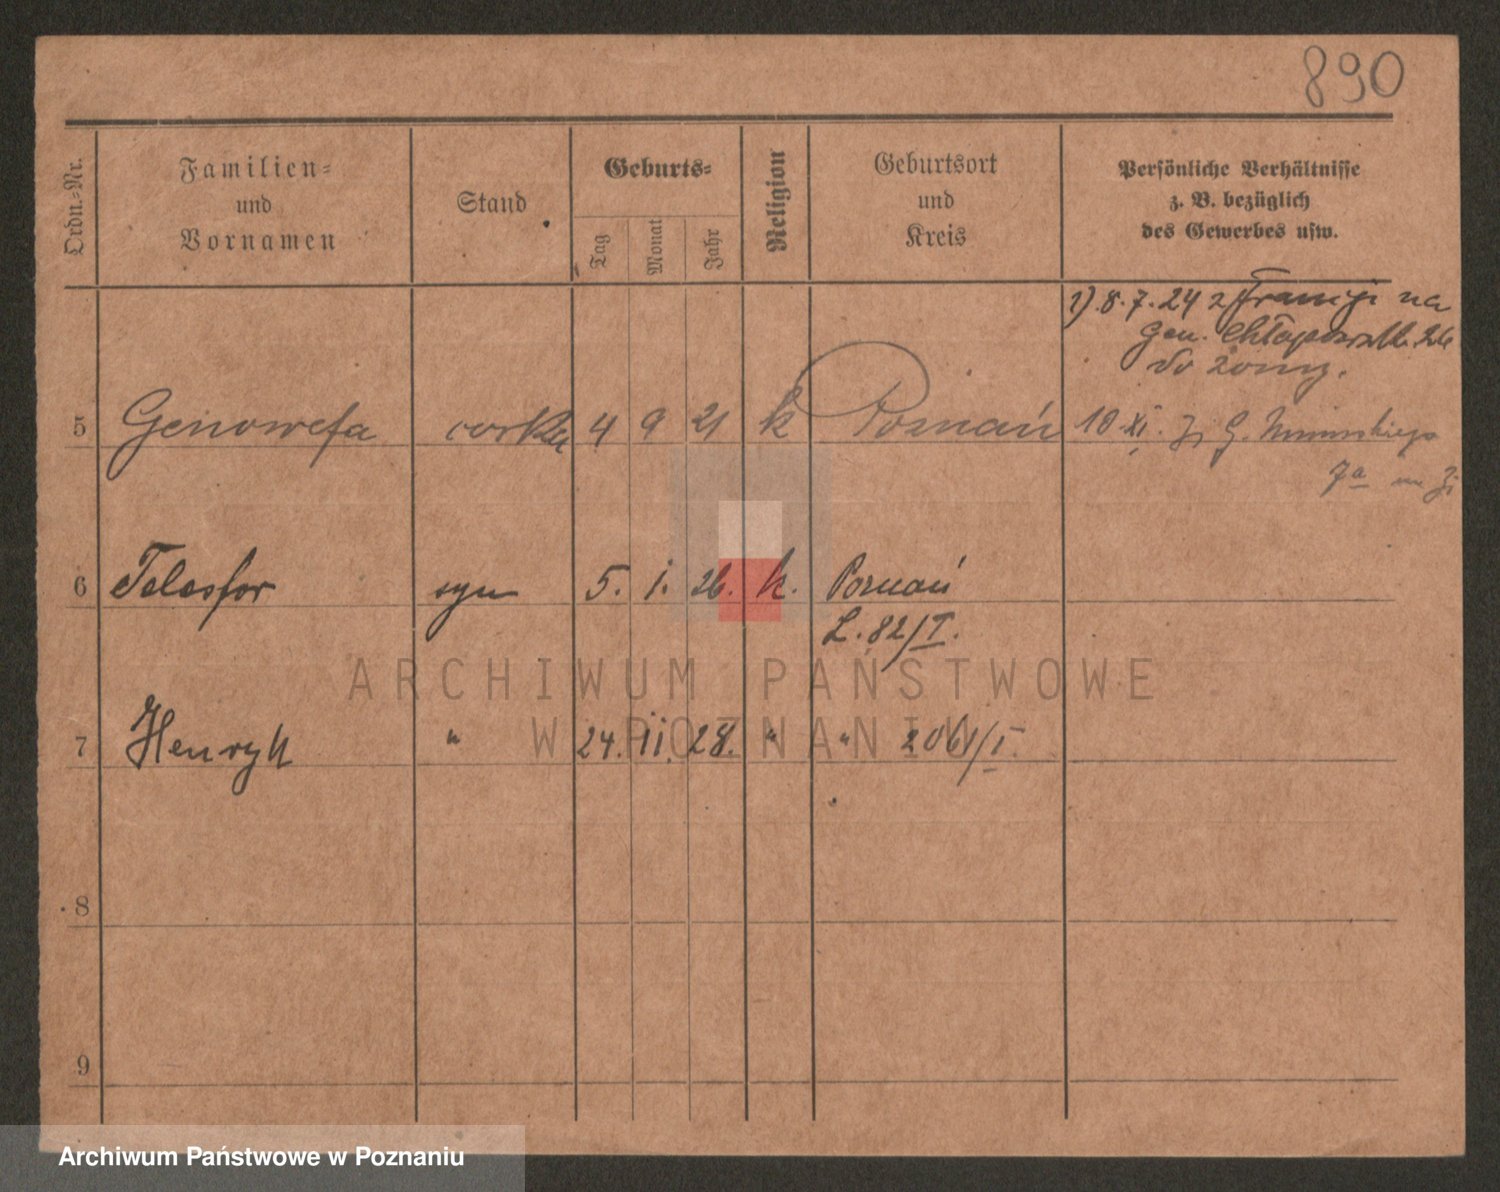 890
Ordn.-Nr.
Familien-
und
Vornamen
Stand
Geburts-
Tag
Monat
Jahr
Religion
Geburtsort
und
Kreis
Persönliche Verhältnisse
z. B. bezüglich
des Gewerbes usw.
1) 8.7.24 z Francji na
Gen. 26
do żony.
5 Genowefa corka 4 9 21 k Poznań 10.XI.
7a
6 Telesfor syn 5. 1. 26. k. Poznań
L. 82/I.
7 Henryk " 24. 11. 28. " " 2061/I.
8
9
ARCHIWUM PAŃSTWOWE
W POZNANIU
Archiwum Państwowe w Poznaniu